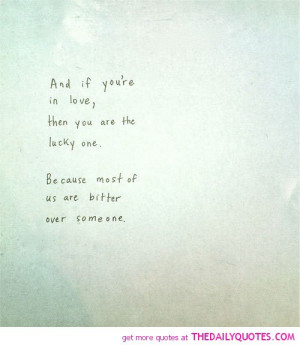 And if you're
in love,
then you are the
lucky one.
Because most of
us are bitter
over someone.
get more quotes at THEDAILYQUOTES.COM